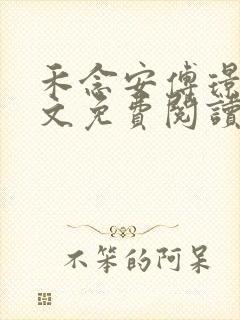 禾念安傅璟
文免費閱讀
不笨的阿呆